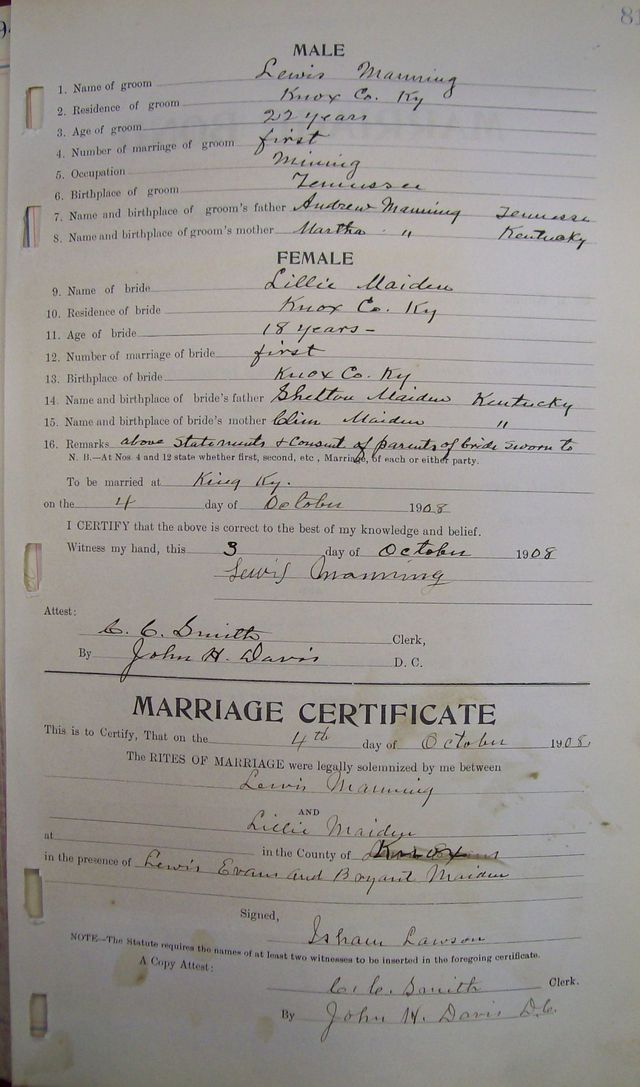 81
MALE
1. Name of groom Lewis Manning
2. Residence of groom Knox Co. Ky
3. Age of groom 22 years
4. Number of marriage of groom first
5. Occupation Mining
6. Birthplace of groom Tennessee
7. Name and birthplace of groom's father Andrew Manning Tennessee
8. Name and birthplace of groom's mother Martha " Kentucky
FEMALE
9. Name of bride Lillie Maiden
10. Residence of bride Knox Co. Ky
11. Age of bride 18 years-
12. Number of marriage of bride first
13. Birthplace of bride Knox Co. Ky
14. Name and birthplace of bride's father Shelton Maiden Kentucky
15. Name and birthplace of bride's mother Maiden "
16. Remarks above statements & consent of parents of bride sworn to
N. B.—At Nos. 4 and 12 state whether first, second, etc., Marriage, of each or either party.
To be married at King Ky.
on the 4 day of October 1908
I CERTIFY that the above is correct to the best of my knowledge and belief.
Witness my hand, this 3 day of October 1908
Lewis Manning
Attest:
C. C. Smith Clerk,
By John H. Davis D. C.
MARRIAGE CERTIFICATE
This is to Certify, That on the 4th day of October 1908.
The RITES OF MARRIAGE were legally solemnized by me between
Lewis Manning
AND
Lillie Maiden
at in the County of Knox
in the presence of Lewis Evans and Bryant Maiden
Signed,
Isham Lawson
NOTE—The Statute requires the names of at least two witnesses to be inserted in the foregoing certificate.
A Copy Attest:
C. C. Smith Clerk.
By John H. Davis D.C.